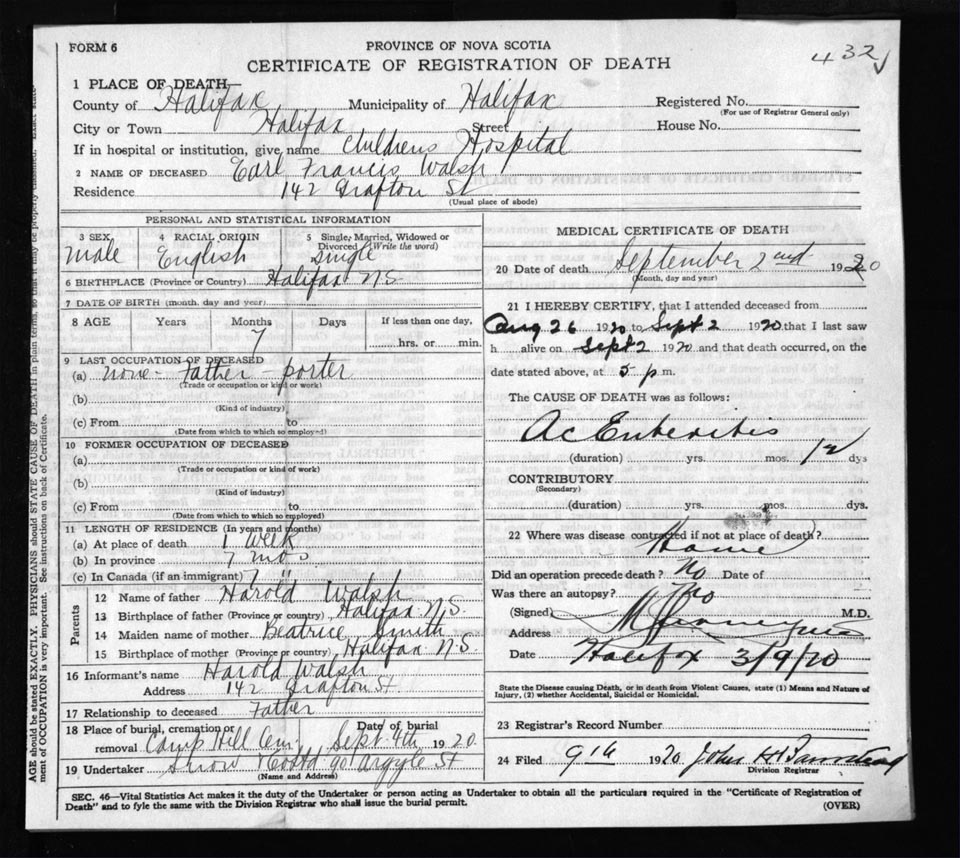 FORM 6
PROVINCE OF NOVA SCOTIA
CERTIFICATE OF REGISTRATION OF DEATH
432
1 PLACE OF DEATH—
County of Halifax Municipality of Halifax Registered No.
(For use of Registrar General only)
City or Town Halifax Street House No.
If in hospital or institution, give name Childrens Hospital
2 NAME OF DECEASED Earl Francis Walsh
Residence 142 Grafton St
(Usual place of abode)
PERSONAL AND STATISTICAL INFORMATION
3 SEX 4 RACIAL ORIGIN 5 Single, Married, Widowed or Divorced (Write the word)
Male English Single
6 BIRTHPLACE (Province or Country) Halifax N S
7 DATE OF BIRTH (month, day and year)
8 AGE Years Months Days If less than one day,
7 hrs. or min.
9 LAST OCCUPATION OF DECEASED
(a) none - Father - porter
(Trade or occupation or kind of work)
(b)
(Kind of industry)
(c) From to
(Date from which to which so employed)
10 FORMER OCCUPATION OF DECEASED
(a)
(Trade or occupation or kind of work)
(b)
(Kind of industry)
(c) From to
(Date from which to which so employed)
11 LENGTH OF RESIDENCE (In years and months)
(a) At place of death 1 Week
(b) In province 7 mos
(c) In Canada (if an immigrant) 7 "
Parents
12 Name of father Harold Walsh
13 Birthplace of father (Province or country) Halifax N.S.
14 Maiden name of mother Beatrice Smith
15 Birthplace of mother (Province or country) Halifax N.S.
16 Informant's name Harold Walsh
Address 142 Grafton St.
17 Relationship to deceased Father
18 Place of burial, cremation or removal Camp Hill Cem. Date of burial Sept. 4th 1920.
19 Undertaker Snow & Co Ltd 90 Argyle St
(Name and Address)
MEDICAL CERTIFICATE OF DEATH
20 Date of death September 2nd 1920
(Month, day and year)
21 I HEREBY CERTIFY, that I attended deceased from
Aug 26 1920 to Sept 2 1920 that I last saw
h alive on Sept 2 1920 and that death occurred, on the
date stated above, at 5 p m.
The CAUSE OF DEATH was as follows:
Ac Enteritis
(duration) yrs. mos. 12 dys
CONTRIBUTORY
(Secondary)
(duration) yrs. mos. dys.
22 Where was disease contracted if not at place of death?
Home
Did an operation precede death? No Date of
Was there an autopsy? No
(Signed) M.D.
Address
Date Halifax 3/9/20
State the Disease causing Death, or in death from Violent Causes, state (1) Means and Nature of
Injury, (2) whether Accidental, Suicidal or Homicidal.
23 Registrar's Record Number
24 Filed 9th 1920 John
Division Registrar
SEC. 46—Vital Statistics Act makes it the duty of the Undertaker or person acting as Undertaker to obtain all the particulars required in the "Certificate of Registration of
Death" and to fyle the same with the Division Registrar who shall issue the burial permit.
(OVER)
AGE should be stated EXACTLY. PHYSICIANS should STATE CAUSE OF DEATH in plain terms, so that it may be properly classified.
ment of OCCUPATION is very important. See instructions on back of Certificate.